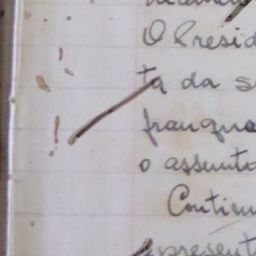 O Presid
ta da s
franque
o assunto
Continu
apresent